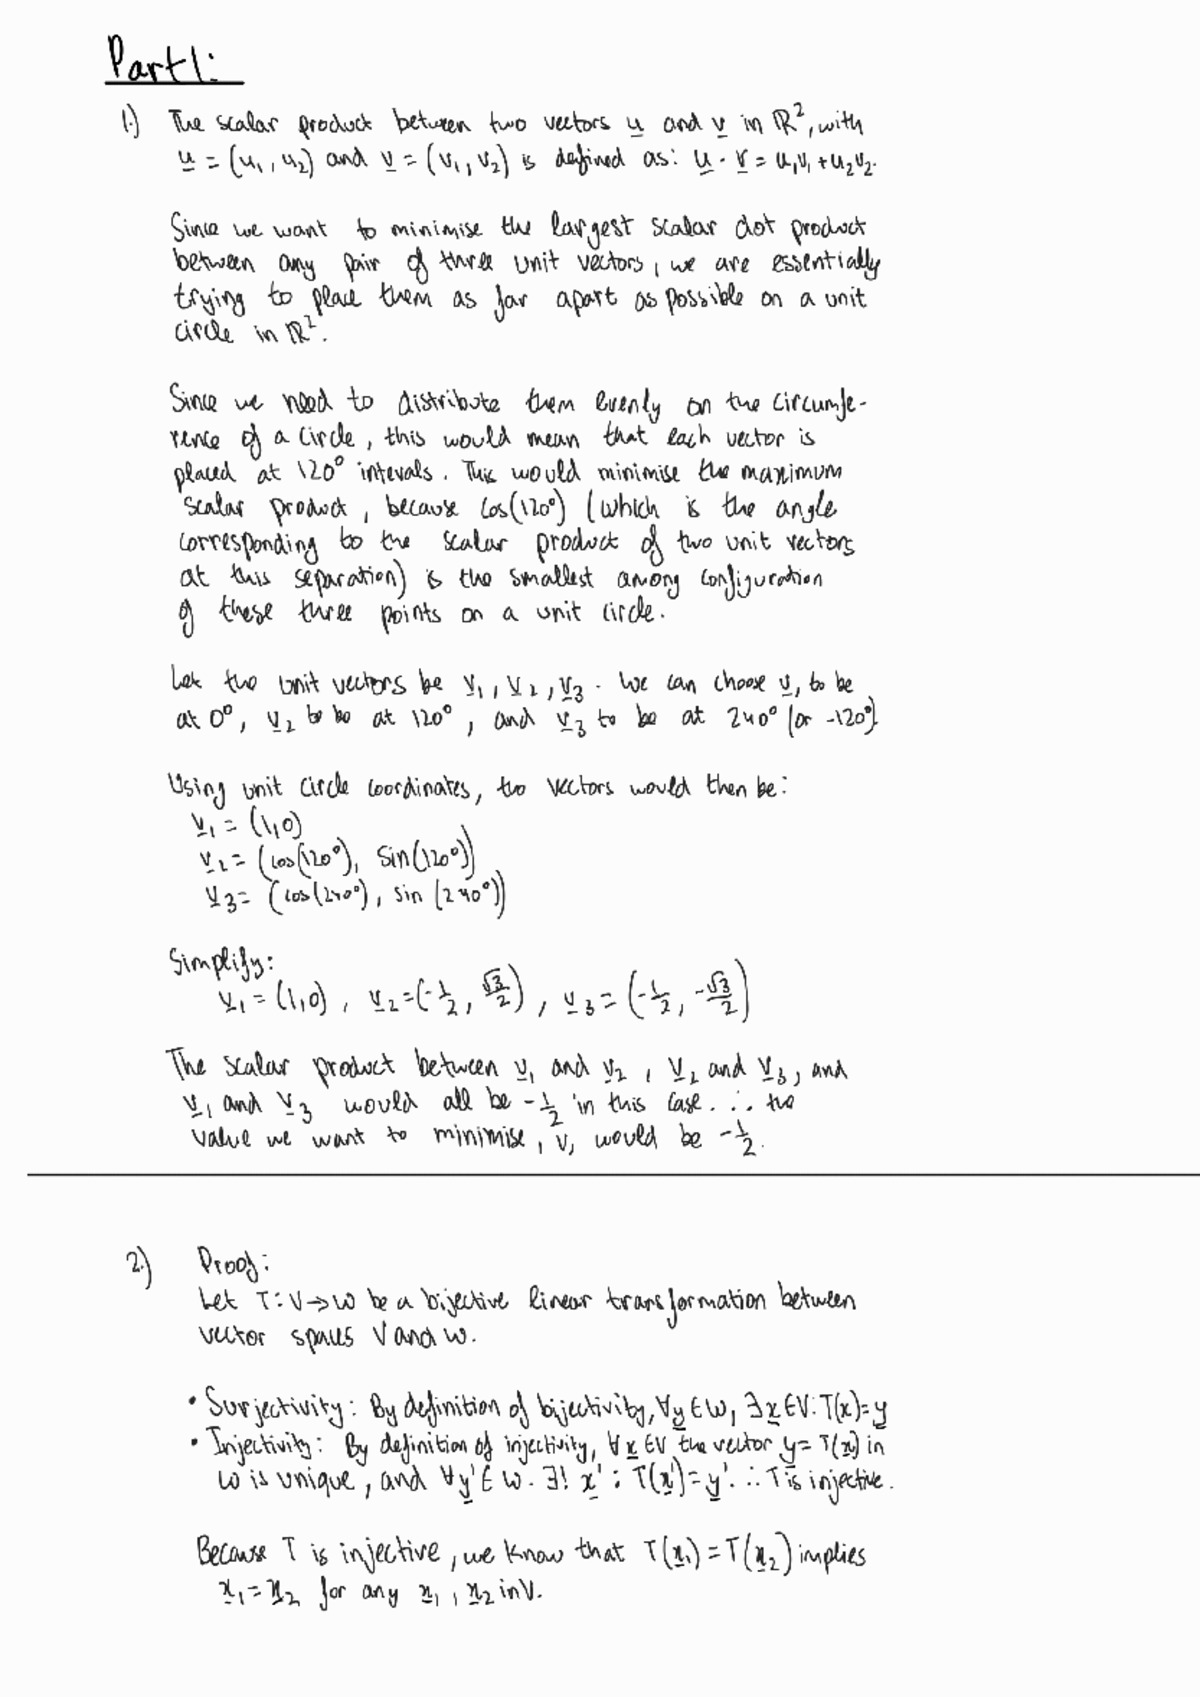 Part 1:
1.) The scalar product between two vectors u and v in ℝ², with
u = (u₁, u₂) and v = (v₁, v₂) is defined as: u · v = u₁v₁ + u₂v₂.
Since we want to minimise the largest scalar dot product
between any pair of three unit vectors, we are essentially
trying to place them as far apart as possible on a unit
circle in ℝ².
Since we need to distribute them evenly on the circumfe-
rence of a circle, this would mean that each vector is
placed at 120° intevals. This would minimise the maximum
scalar product, because cos(120°) (which is the angle
corresponding to the scalar product of two unit vectors
at this separation) is the smallest among configuration
of these three points on a unit circle.
Let the unit vectors be v₁, v₂, v₃. We can choose v₁ to be
at 0°, v₂ to be at 120°, and v₃ to be at 240° (or -120°).
Using unit circle coordinates, the vectors would then be:
v₁ = (1,0)
v₂ = (cos(120°), sin(120°))
v₃ = (cos(240°), sin(240°))
Simplify:
v₁ = (1,0), v₂ = (-1/2, √3/2), v₃ = (-1/2, -√3/2)
The scalar product between v₁ and v₂, v₂ and v₃, and
v₁ and v₃ would all be -1/2 in this case. ∴ the
value we want to minimise, v, would be -1/2.
2.) Proof:
Let T: V→W be a bijective linear transformation between
vector spaces V and W.
• Surjectivity: By definition of bijectivity, ∀y∈W, ∃x∈V: T(x)=y
• Injectivity: By definition of injectivity, ∀x∈V the vector y=T(x) in
W is unique, and ∀y'∈W. ∃! x' : T(x')=y'. ∴ T is injective.
Because T is injective, we know that T(x₁)=T(x₂) implies
x₁=x₂ for any x₁, x₂ in V.